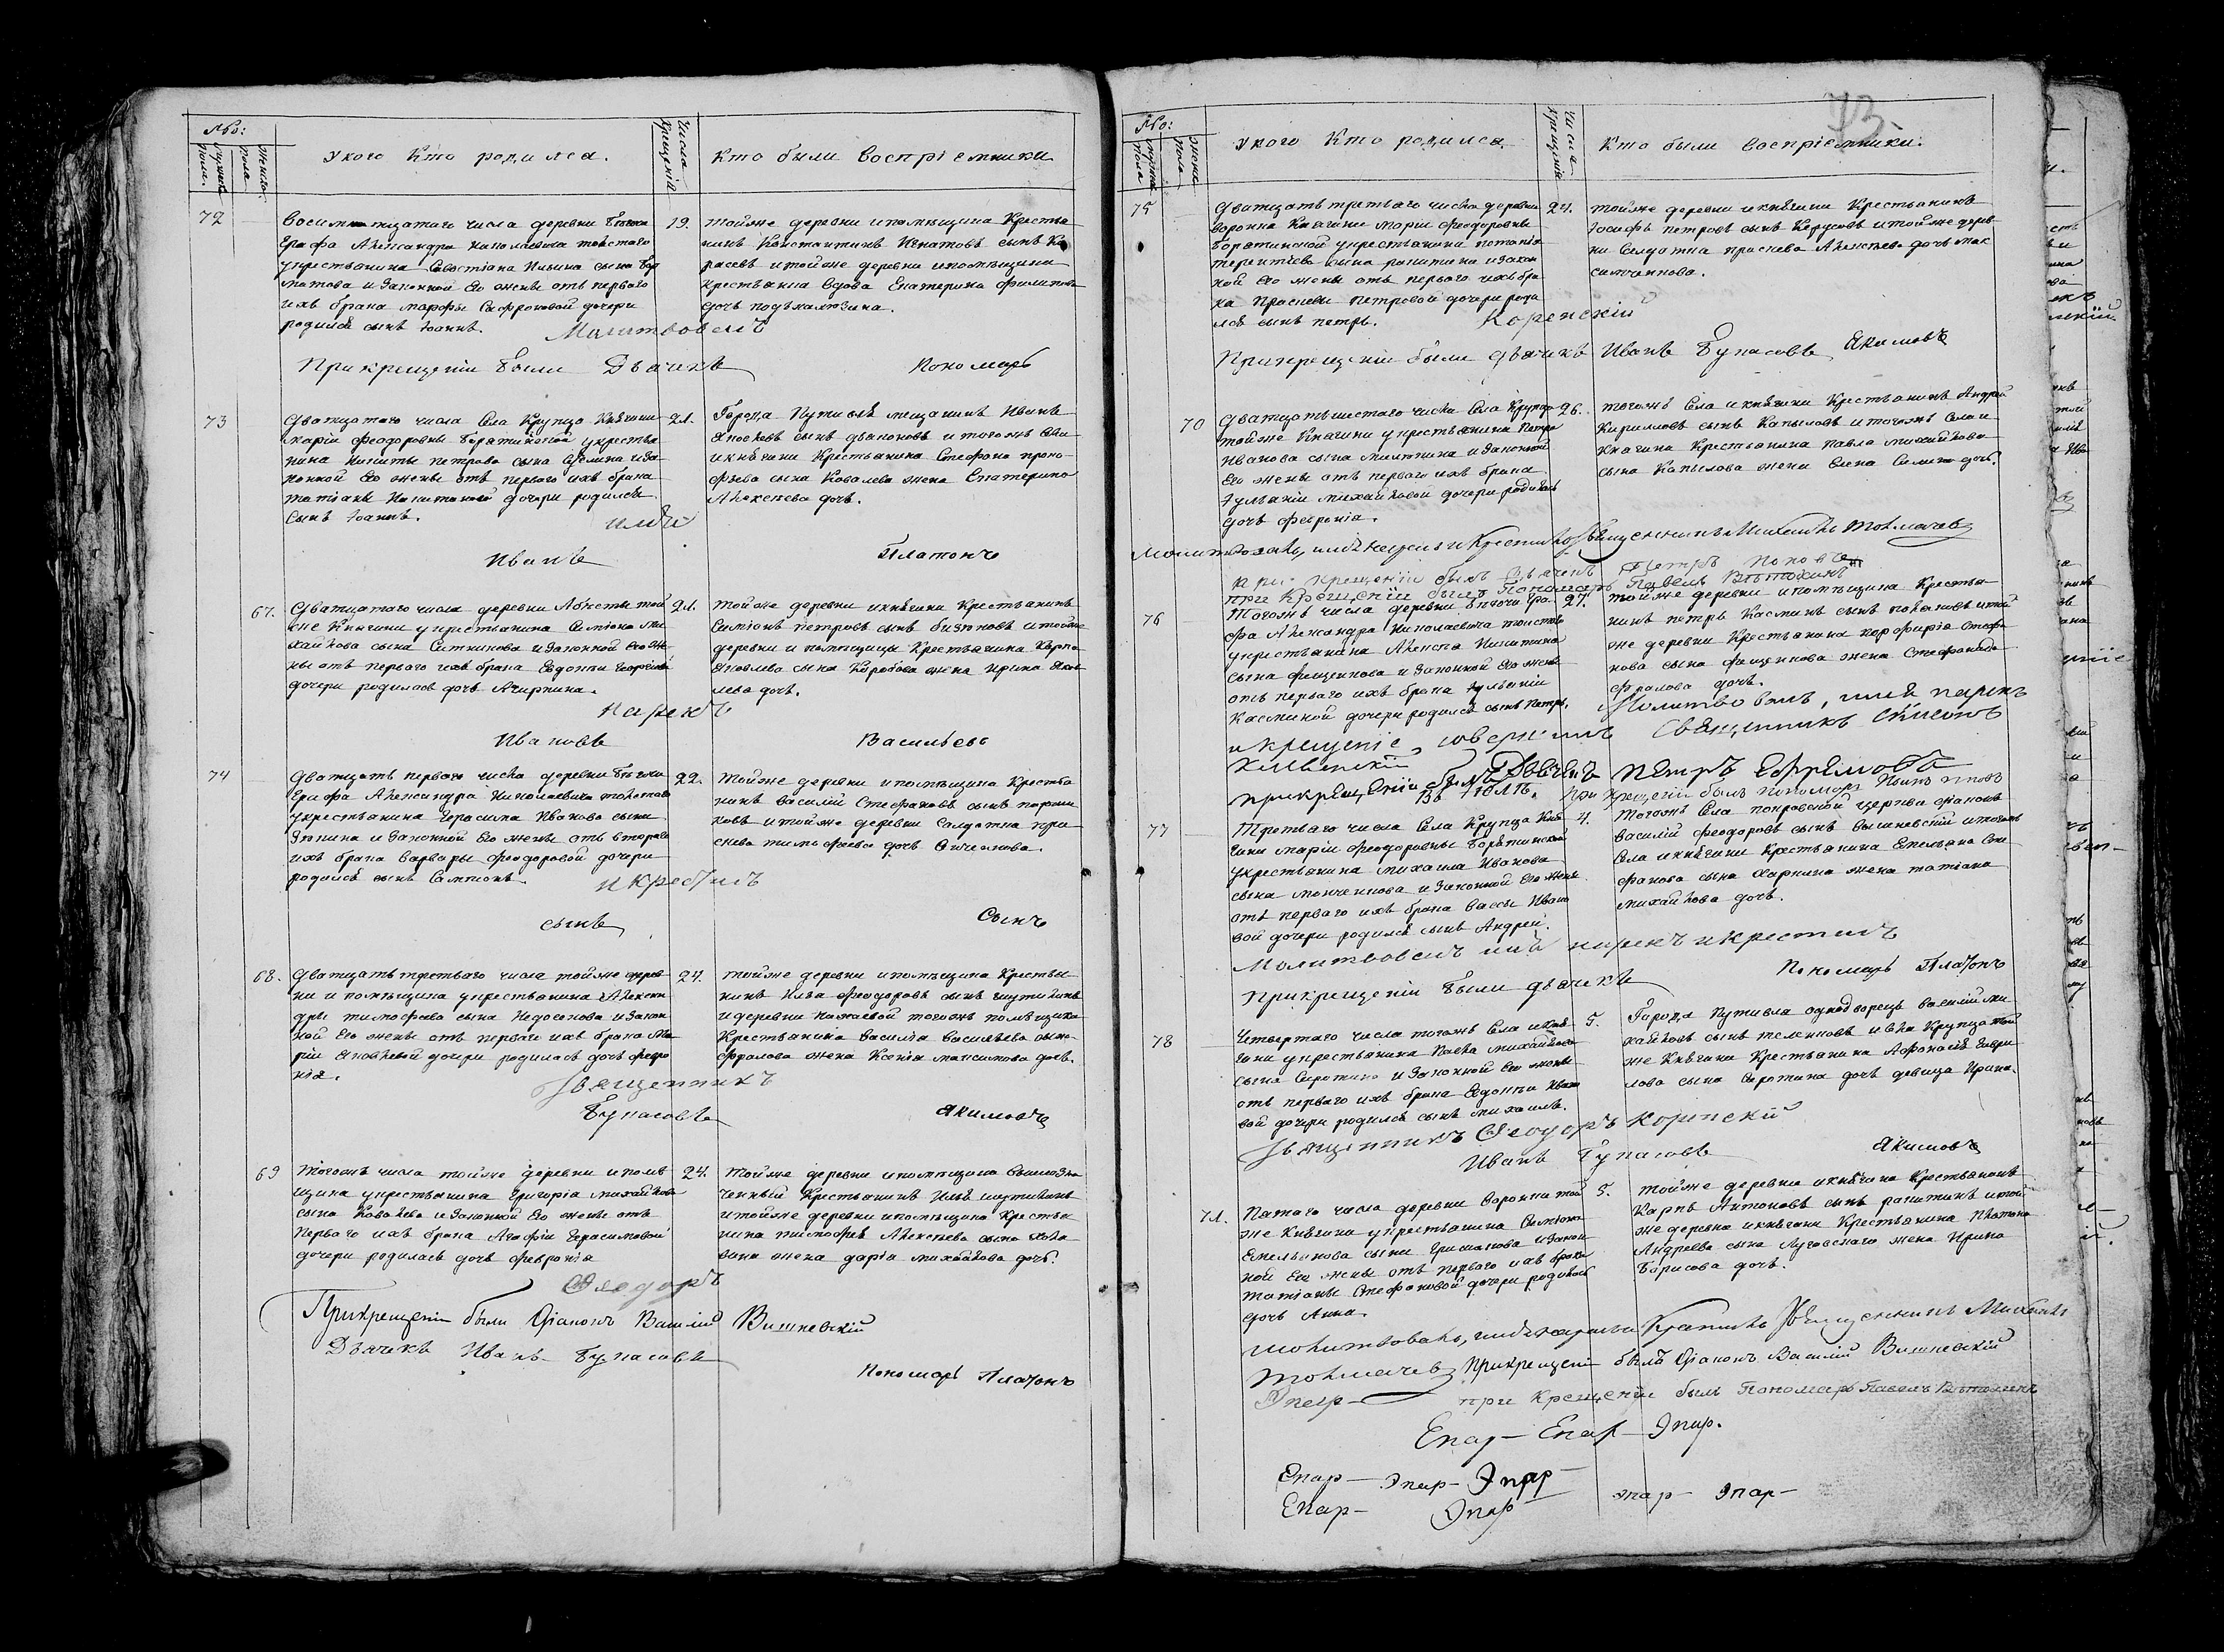 №о:
Мужска Пола.
Женска Пола
У кого Кто родился.
Числа Крещенія
Кто были воспріемники
72
Восимнатцатого числа деревни
Графа Александра Николаевича толстого
укрестьянина Савостіана Ильина сына
матова и законной Его жены отъ первого
ихъ брака марфы Сафроновой дочери
родился сынъ Іоаннъ.
19.
тойже деревни ипомѣщика Крестья
нинъ Константинъ Игнатовъ сынъ Ка
расевъ итойже деревни ипомѣщика
крестьянка вдова Екатерина филипова
дочь
Молитвовалъ
При крещеніи были Дьячекъ
Пономарь
73
Дватцатого числа Села Крупца Княгини
маріи феодоровны Борятинской укрестья
нина Никиты петрова сына иза
конной Его жены отъ первого ихъ брака
татіаны Никитиной дочери родился
сынъ Іоаннъ.
21.
Города Путивля мещанинъ Иванъ
Яковлевъ сынъ дьяконовъ и тогожъ Села
и княгини Крестьянина Стефана проко
фьева сына Ковалева жена Екатерина
Алексѣева дочь.
имя
Иванъ
Платонъ
67.
Дватцатого числа деревни той
же Княгини укрестьянина Симіона Ми
хайлова сына Ситникова изаконной Его Же
ны отъ первого ихъ брака Евдокіи Георгіевой
дочери родилась дочь Агрипина.
21.
тойже деревни и княгини Крестьянинъ
Симіонъ петровъ сынъ бизюковъ итойже
деревни и помѣщицы Крестьянина Карпа
Яковлева сына Коробова жена Ирина Яков
лева дочь.
Нарекъ
Ивановъ
Васильевъ
74
Дватцать первого числа деревни Бѣгочи
Графа Александра Николаевича толстого
укрестьянина Герасима Иванова сына
Зюкина и законной Его жены отъ второго
ихъ брака варвары феодоровой дочери
родился сынъ Сампсонъ.
22.
тойже деревни ипомѣщика Крестья
нинъ василій Стефановъ сынъ
ковъ итойже деревни Салдатка пра
сковья тимофѣева дочь
и крестилъ
сынъ
Сынъ
68.
Дватцать третьяго числа тойже дерев
ни и помѣщика укрестьянина Алексан
дры тимофѣева сына Недосекова изакон
ной Его жены отъ первого ихъ брака Ма
ріи Яковлевой дочери родилась дочь февро
нія.
24.
тойже деревни ипомѣщика Крестья
нинъ Илья феодоровъ сынъ шутилинъ
и деревни тогожъ помѣщика
Крестьянина василія васильева сына
фролова жена Ксенія максимова дочь.
Священникъ
Бунасовъ
Якимовъ
69
Тогожъ числа тойже деревни ипомѣ
щика укрестьянина григорія михайлова
сына Ковалева и законной Его жены отъ
Первого ихъ брака Агафіи Герасимовой
дочери родилась дочь февронія
24.
тойже деревни ипомѣщика вышеозна
ченный Крестьянинъ Илья шутилинъ
итойже деревни ипомѣщика Крестья
нина тимофея Алексѣева сына Кова
лева жена дарія михайлова дочь.
Феодоръ
При крещеніи были Діаконъ Василій Вишневскій
Дьячекъ Иванъ Бунасовъ
Пономарь Платонъ
73.
№о:
Мужска Пола
Женска Пола
У кого Кто родился
Числа Крещенія
Кто были воспріемники.
75
Дватцать третьяго числа деревни
воронка Княгини маріи феодоровны
борятинской укрестьянина потапія
терентіева сына ракитина изакон
ной Его жены отъ первого ихъ бра
ка Прасковьи петровой дочери роди
лся сынъ петръ.
24.
тойже деревни и княгини Крестьянинъ
Іосифъ петровъ сынъ Карусовъ итойже дерев
ни Салдатка прасковья Алексѣева дочь мак
сименкова.
Коренскій
При крещеніи были дьячекъ Иванъ Бунасовъ Якимовъ
70
Дватцать шестаго числа Села Крупца
тойже Княгини укрестьянина петра
Иванова сына Милткина и законной
Его жены отъ первого ихъ брака
Іуліаніи михайловой дочери родилась
дочь февронія.
26.
тогожъ Села и княгини Крестьянинъ Андрей
Кириловъ сынъ Капыловъ итогожъ Села и
княгини Крестьянина павла михайлова
сына Капылова жена Елена дочь.
Молитвовалъ, имя нарекъ и Крестилъ Священникъ Михаилъ Толмачевъ
при крещеніи былъ Дьячекъ Петръ Поповъ
при Крещеніи былъ Пономарь Павелъ
76
Тогожъ числа деревни Бѣгочи Гра
фа Александра Николаевича толстова
укрестьянина Алексѣя Никитина
сына фищенкова и законной Его жены
отъ первого ихъ брака Іуліаніи
Касминой дочери родился сынъ петръ.
27.
тойже деревни ипомѣщика Крестья
нинъ петръ Касминъ сынъ итой
же деревни Крестьянина порфирія Стефа
нова сына фищенкова жена Стефанида
фролова дочь.
Молитвовалъ, имя нарекъ
и крещеніе, совершилъ Священникъ Симеонъ
при крещеніи былъ Дьячекъ Петръ Ефремовъ
при крещеніи былъ пономарь
Въ Іюлѣ.
77
Третьяго числа Села Крупца Кня
гини маріи феодоровны борятинской
укрестьянина михаила Иванова
сына и законной Его жены
отъ первого ихъ брака вассы Ивано
вой дочери родился сынъ Андрей.
4.
Тогожъ Села покровской церкви діаконъ
василій феодоровъ сынъ вишневскій итогожъ
Села и княгини Крестьянина Емельяна Сте
фанова сына Харкина жена татіана
михайлова дочь.
Молитвовалъ имя нарекъ и крестилъ
При крещеніи были дьячекъ
Пономарь Платонъ
78
Четвертаго числа тогожъ Села и кня
гини укрестьянина Павла михайлова
сына Саротина и законной Его жены
отъ первого ихъ брака Евдокіи Ивано
вой дочери родился сынъ михаилъ.
5.
Города Путивля однодворецъ василій ми
хайловъ сынъ и Села Крупца той
же Княгини Крестьянина Афонасія Гаври
лова сына Саротина дочь девица Ирина.
Священникъ Феодоръ Коренскій
Иванъ Бунасовъ
Якимовъ
71.
Пятаго числа деревни воронки той
же Княгини укрестьянина Симіона
Емельянова сына Гришакова изакон
ной Его жены отъ первого ихъ брака
татіаны Стефановой дочери родилась
дочь Анна.
5.
тойже деревни и княгини Крестьянинъ
Карпъ Антоновъ сынъ ракитинъ итой
же деревни и княгини Крестьянина Платона
Андреева сына Луговскаго жена Ирина
Борисова дочь.
Молитвовалъ, имя нарекъ и Крестилъ Священникъ Михаилъ
Толмачевъ При крещеніи былъ Діаконъ Василій Вишневскій
при Крещеніи былъ Пономарь Павелъ
Епар— Епар— Эпар.
Епар— Эпар— Эпар—
Епар— Эпар
Эпар— Эпар—